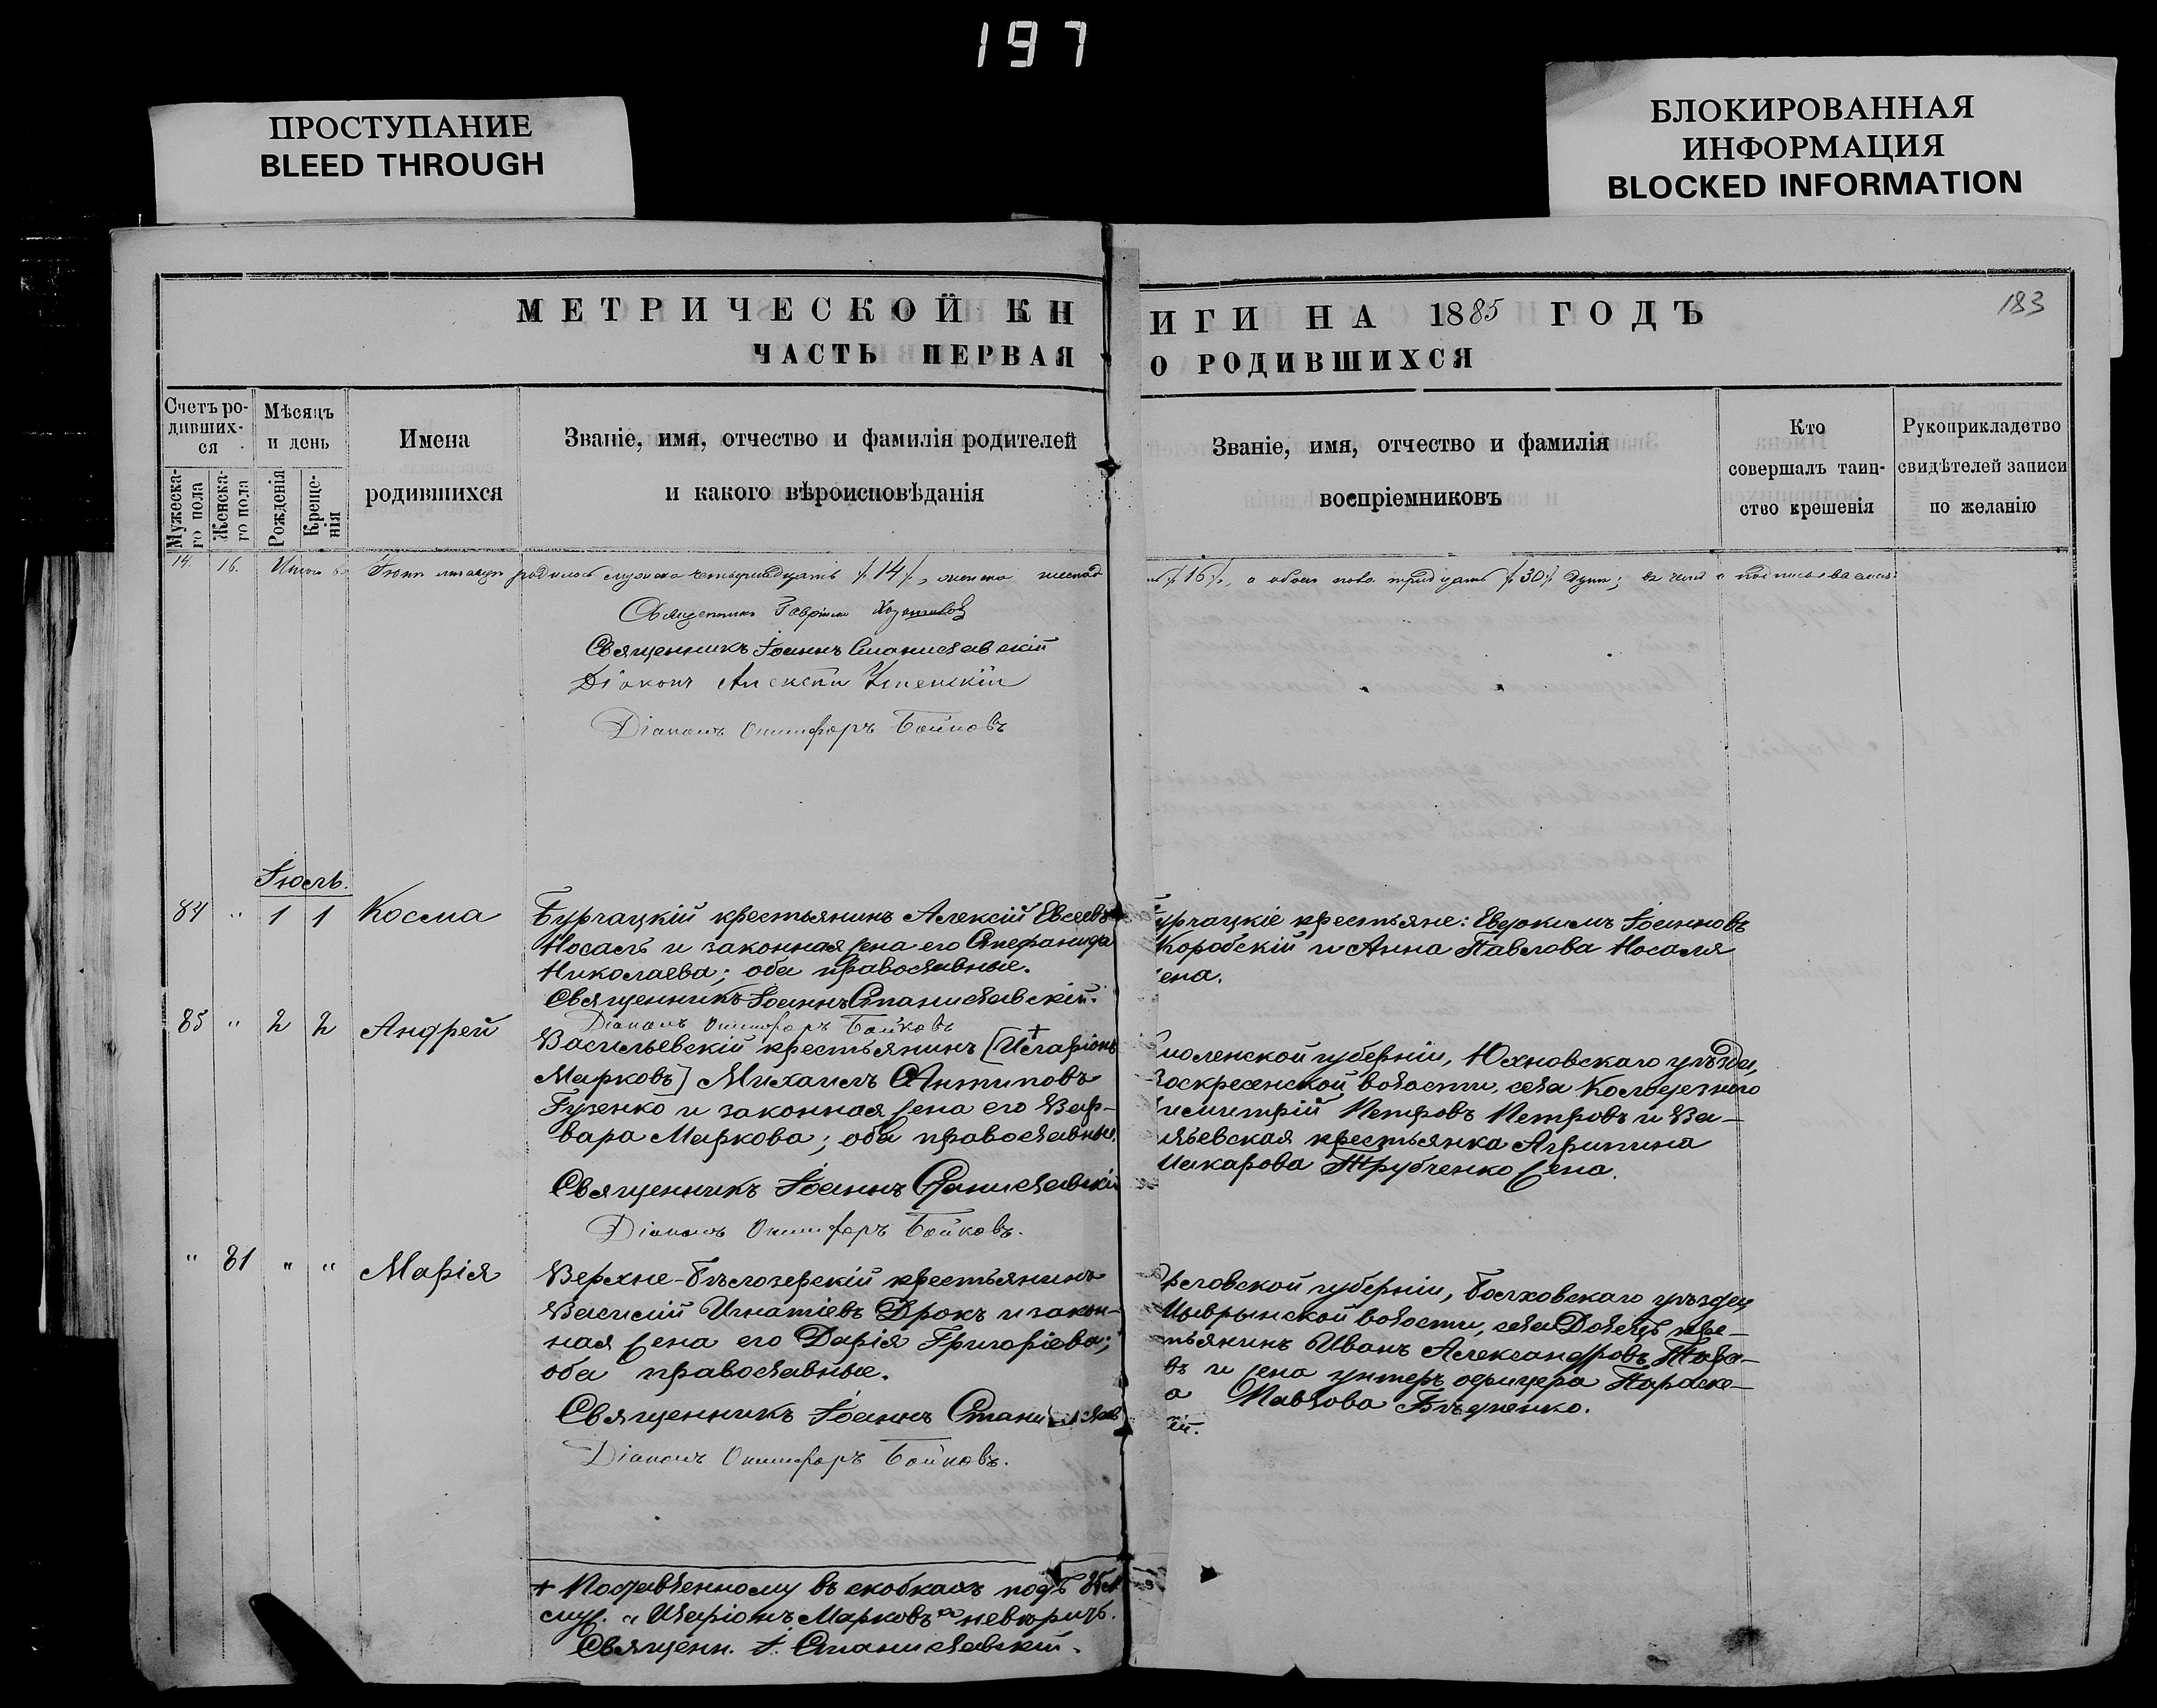 197
ПРОСТУПАНИЕ
BLEED THROUGH
БЛОКИРОВАННАЯ
ИНФОРМАЦИЯ
BLOCKED INFORMATION
МЕТРИЧЕСКОЙ КН
ИГИ НА 1885 ГОДЪ
183
ЧАСТЬ ПЕРВАЯ
О РОДИВШИХСЯ
Счетъ ро-
дивших-
ся
Мужеска-
го пола
Женска-
го пола
Мѣсяцъ
и день
Рожденія
Креще-
нія
Имена
родившихся
Званіе, имя, отчество и фамилія родителей
и какого вѣроисповѣданія
Званіе, имя, отчество и фамилія
воспріемниковъ
Кто
совершалъ таин-
ство крещенія
Рукоприкладство
свидѣтелей записи
по желанію
14. 16. Итого въ Іюнѣ мѣсяцѣ родилось мужеска четырнадцать /14/, женска шестнад
/16/, а обоего пола тридцать /30/ душъ; въ чемъ и подписываемся:
Священникъ Гавріилъ
Священникъ Іоаннъ Станиславскій
Діаконъ Алексѣй Успенскій
Діаконъ Онисифоръ Бойковъ
Іюль.
84 " 1 1 Косма
Бургацкій крестьянинъ Алексій Евсеевъ
Носаль и законная жена его Стефанида
Николаева; оба православные.
Священникъ Іоаннъ Станиславскій.
Діаконъ Онисифоръ Бойковъ
ургацкіе крестьяне: Евдокимъ Іоанновъ
Коробскій и Анна Павлова Носаля
ена.
85 " 2 2 Андрей
Васильевскій крестьянинъ [Иларіонъ +
Марковъ] Михаилъ Антиповъ
Гузенко и законная жена его Вар-
вара Маркова; оба православные.
Священникъ Іоаннъ Станиславскій
Діаконъ Онисифоръ Бойковъ.
моленской губерніи, Юхновскаго уѣзда,
оскресенской волости, села Колодезного
имитрій Петровъ Петровъ и Ва-
льевская крестьянка Агрипина
Макарова Трубченко жена.
" 81 " " Марія
Верхне-Бѣлозерскій крестьянинъ
Василій Игнатіевъ Дрокъ и закон-
ная жена его Дарія Григоріева;
оба православные.
Священникъ Іоаннъ Станислав
ій.
Діаконъ Онисифоръ Бойковъ.
рловской губерніи, Болховскаго уѣзда,
волости, села кре-
тьянинъ Иванъ Александровъ
въ и жена унтеръ офицера Параске-
а Павлова
+ Поставленному въ скобкахъ подъ
муж. "Иларіонъ Марковъ" не вѣрить.
Священн. І. Станиславскій.